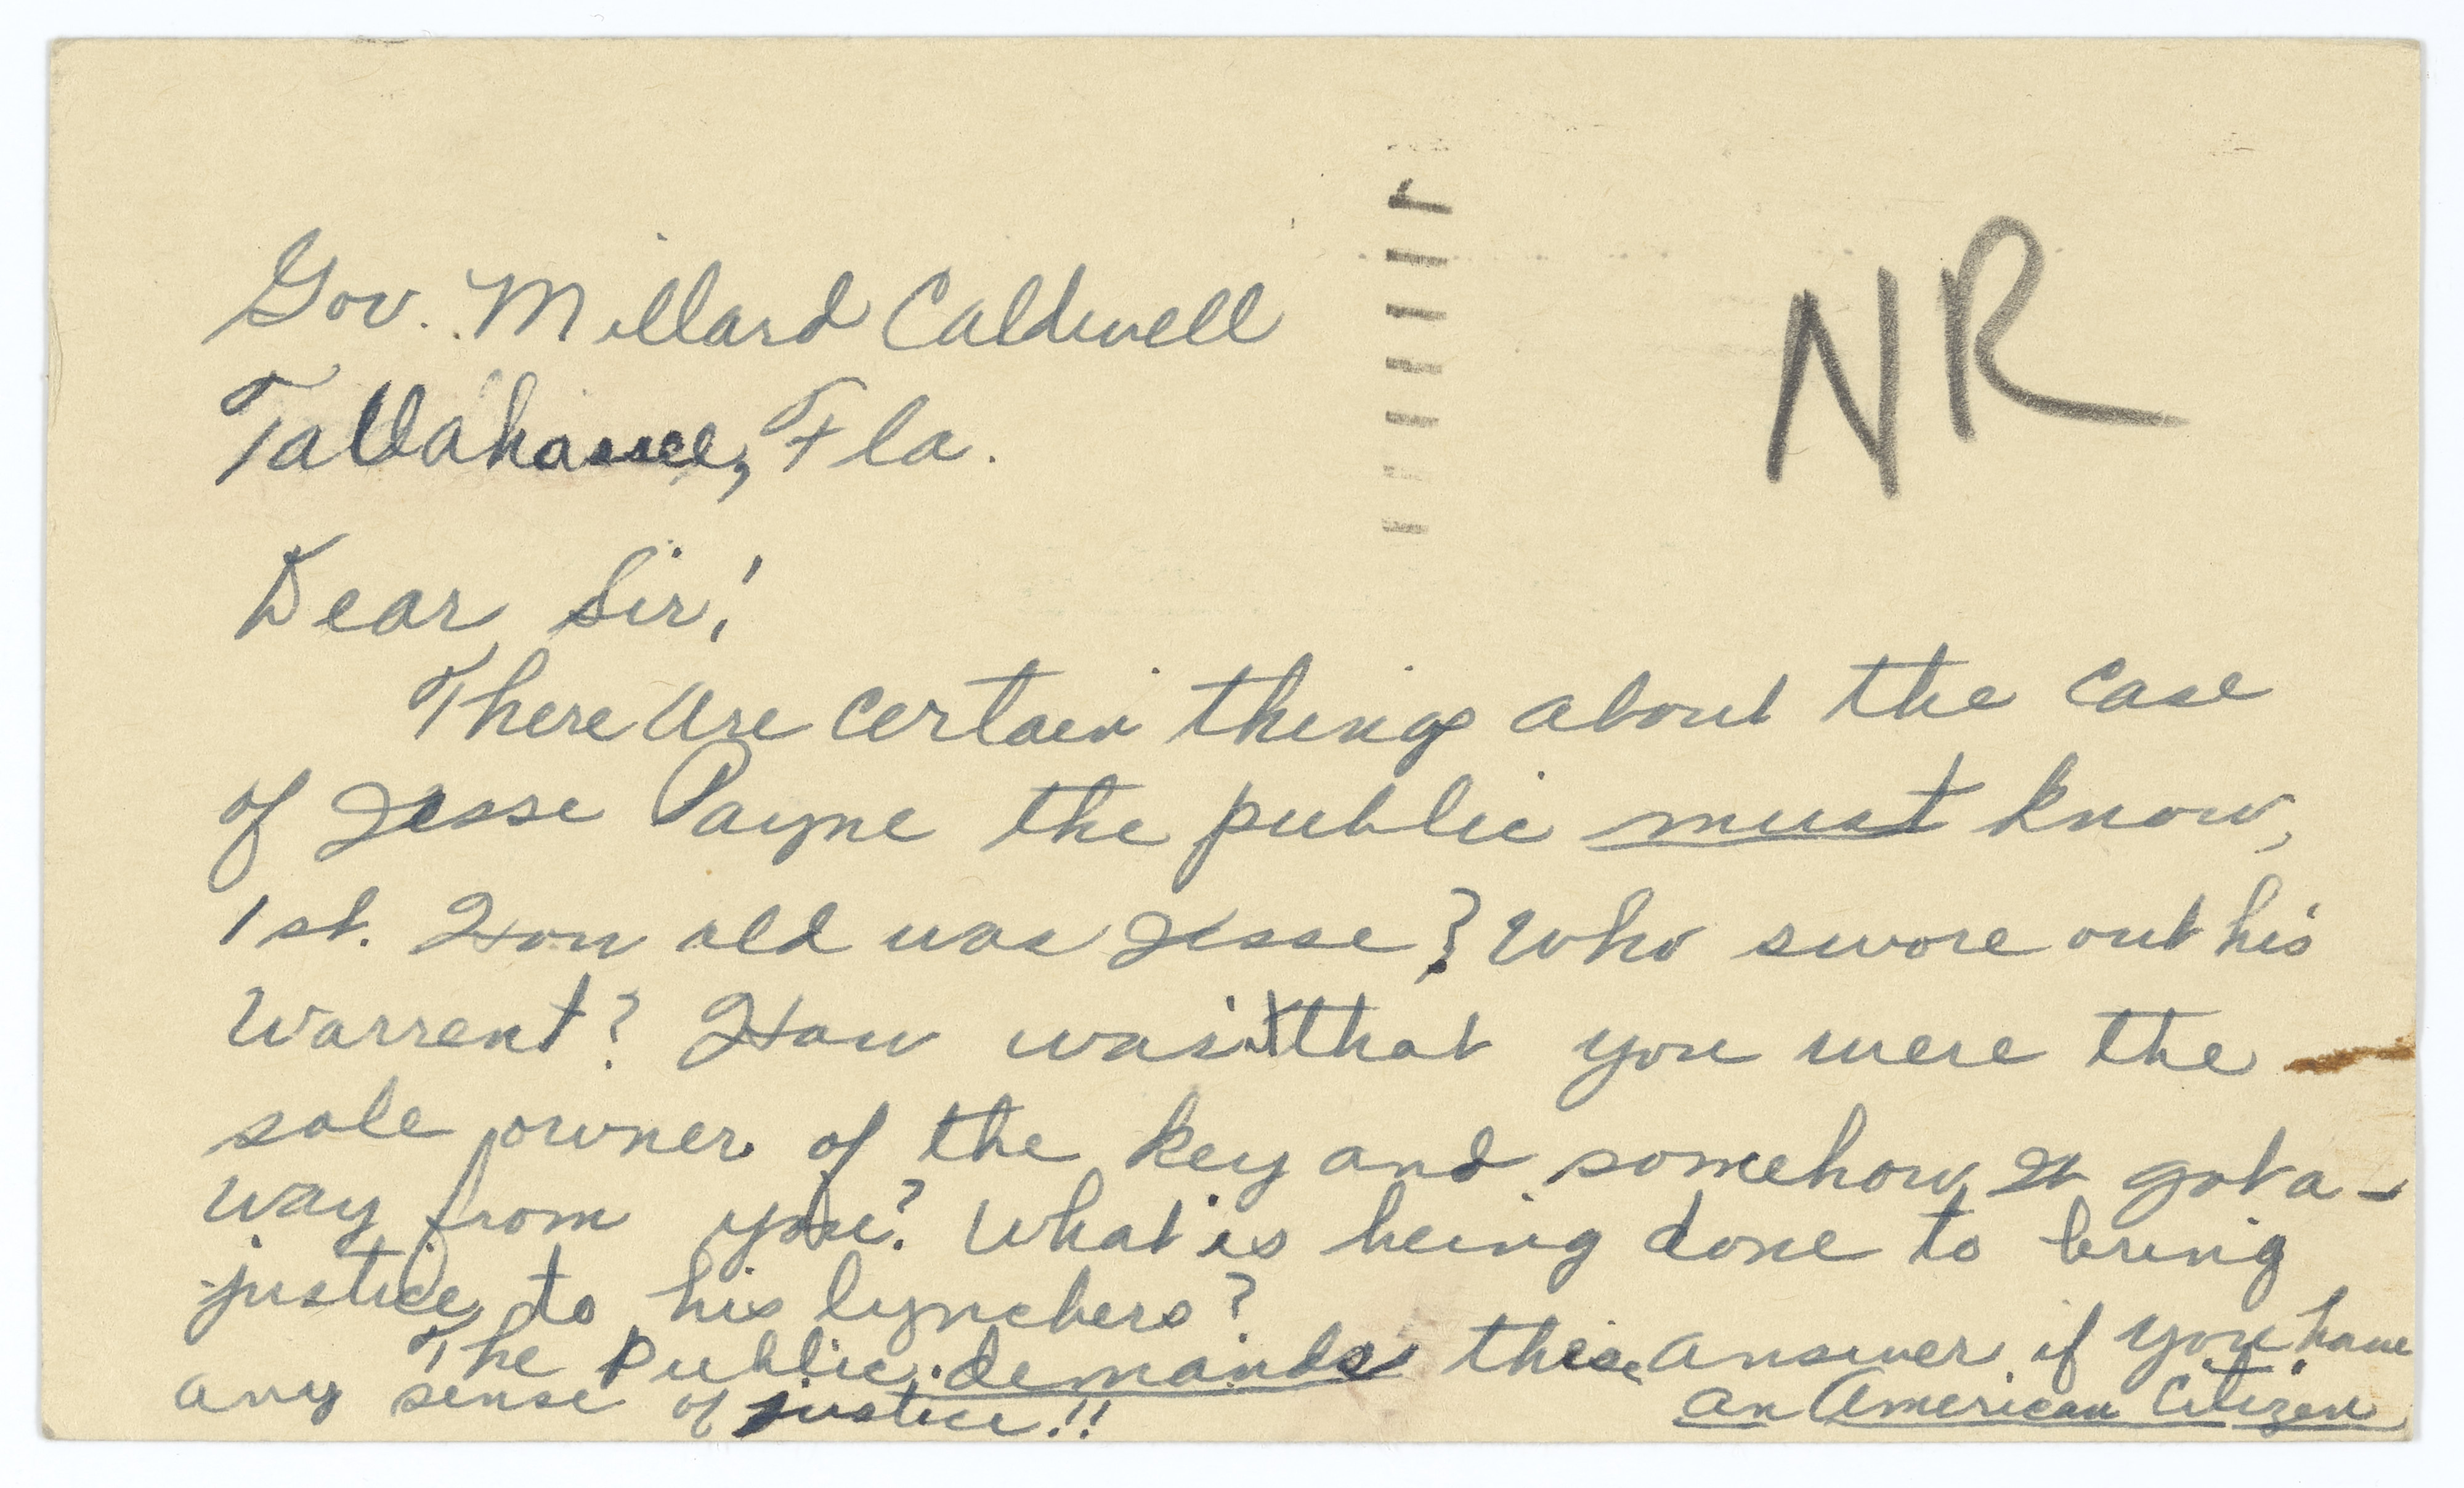 NR
Gov. Millard Caldwell
Tallahassee, Fla.
Dear Sir:
There are certain things about the case
of Jesse Payne the public must know,
1st. How old was Jesse? Who swore out his
Warrent? How was it that you were the
sole owner of the key and somehow it got a-
way from you? What is being done to bring
justice to his lynchers?
The Public demands these answer if you have
any sense of justice!!
an American Citizen